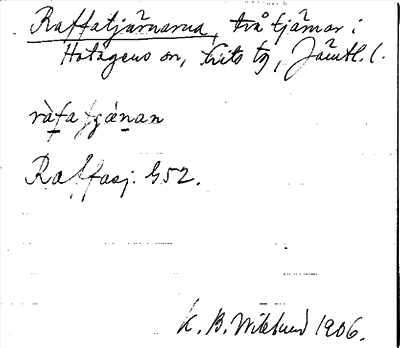 Raffatjärnarna, två tjärnar i
Hotagens sn, Lits tg, Jämtl. l.
ràfa tjánan
Raffasj. G52.
K. B. Wiklund 1906.